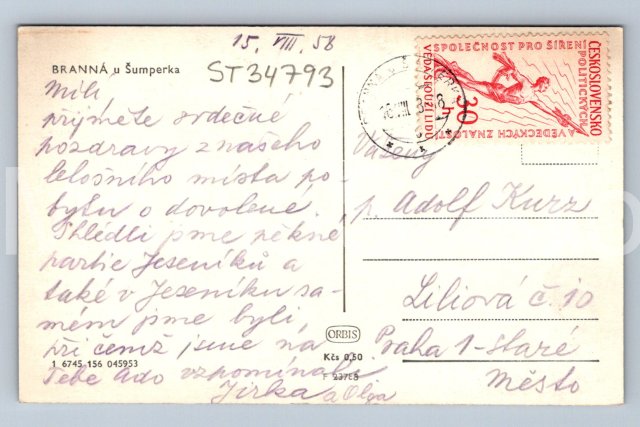 15. VIII. 58
BRANNÁ u Šumperka
ST34793
Milí
přijměte srdečné
pozdravy z našeho
letošního místa po-
bytu o dovolené.
Shlédli jsme pěkné
partie Jeseníků a
také v Jeseníku sa-
mém jsme byli,
při čemž jsme na
Tebe Ado vzpomínali
Jirka a Olga
1 6745-156 045953
ORBIS
Kčs 0,50
SPOLEČNOST PRO ŠÍŘENÍ
POLITICKÝCH
A VĚDECKÝCH ZNALOSTÍ
VĚDA SLOUŽÍ LIDU
ČESKOSLOVENSKO
30 h
Vážený
p. Adolf Kurz
Liliová č. 10
Praha 1-staré
Město